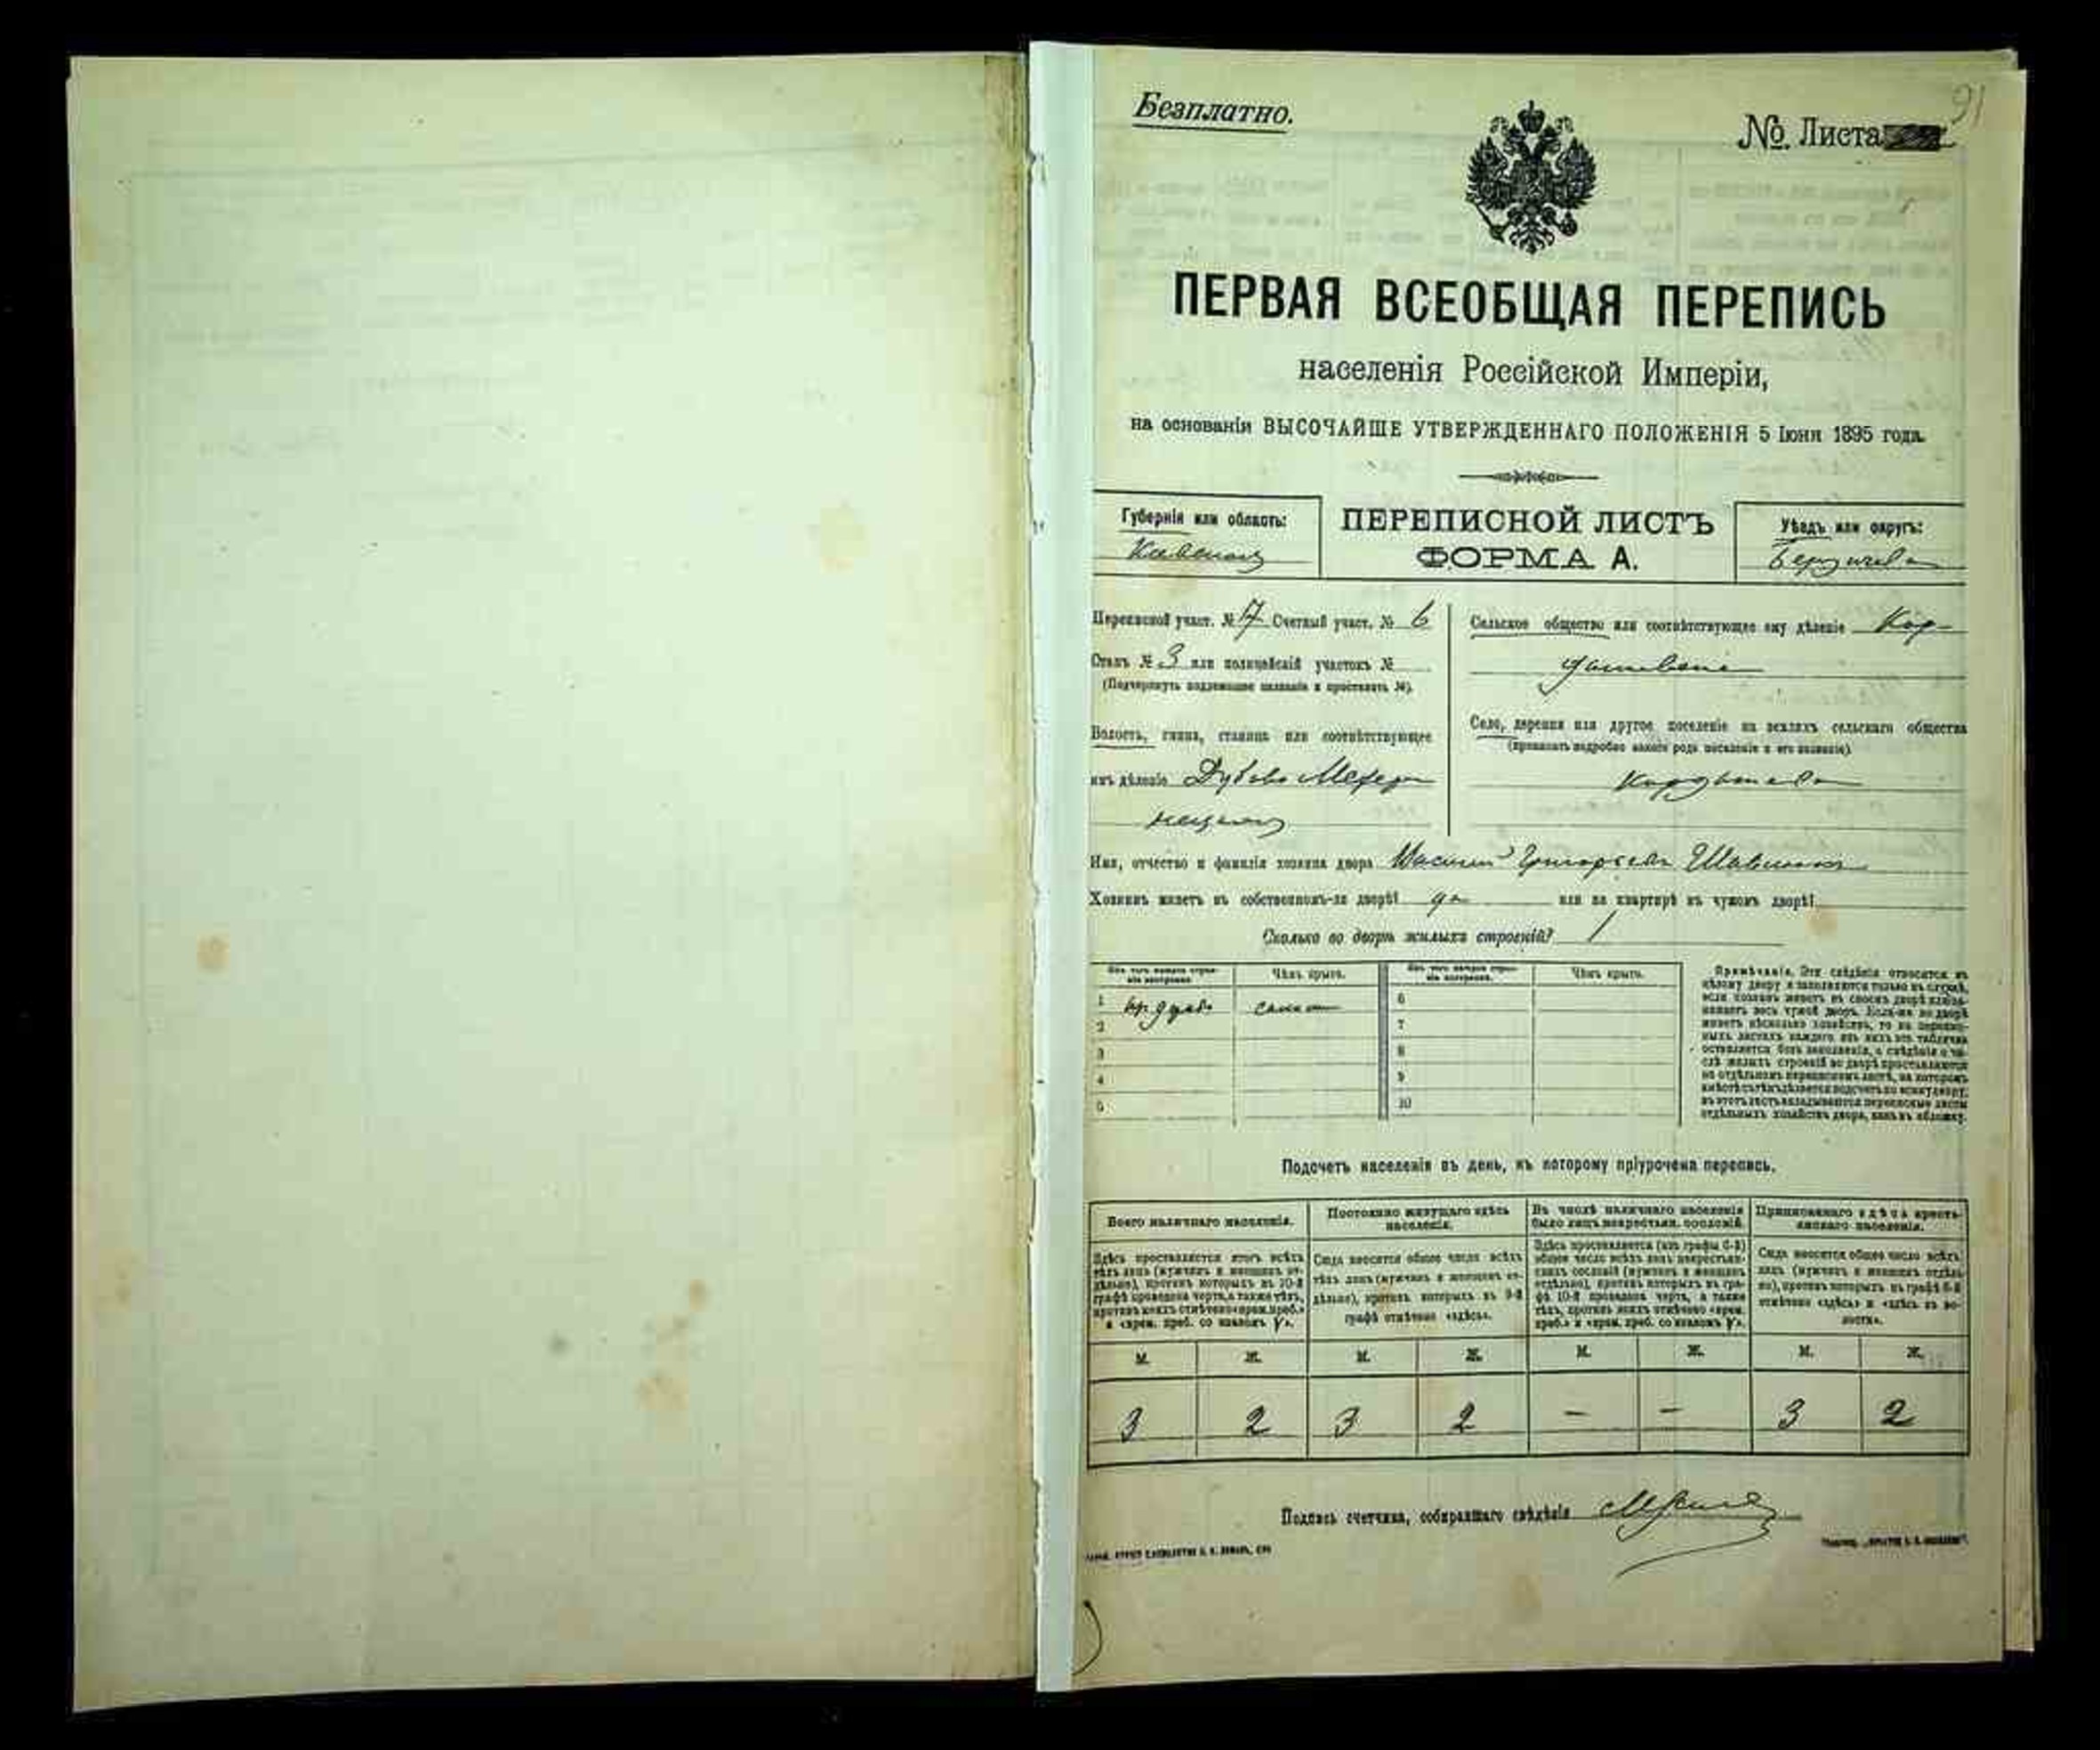 91
Безплатно.
№ Листа
ПЕРВАЯ ВСЕОБЩАЯ ПЕРЕПИСЬ
населенія Россійской Имперіи,
на основаніи ВЫСОЧАЙШЕ УТВЕРЖДЕННАГО ПОЛОЖЕНІЯ 5 Іюня 1895 года.
Губернія или область:
Кіевская
ПЕРЕПИСНОЙ ЛИСТЪ
ФОРМА А.
Уѣздъ или округъ:
Бердичевъ
Переписной участ. № 17 Счетный участ. № 6
Станъ № 3 или полицейскій участокъ №
(Подчеркнуть подлежащее названіе и проставить №).
Волость, гмина, станица или соотвѣтствующее
имъ дѣленіе Дубово Мехере
нецкая
Сельское общество или соотвѣтствующее ему дѣленіе Кор-
дышевка
Село, деревня или другое поселеніе на земляхъ сельскаго общества
(прописать подробно какого рода поселеніе и его названіе)
Кордышевка
Имя, отчество и фамилія хозяина двора Василій Григорьевъ
Хозяинъ живетъ въ собственномъ-ли дворѣ? да или на квартирѣ въ чужомъ дворѣ?
Сколько во дворѣ жилыхъ строеній? 1
Изъ чего каждое строеніе построено. Чѣмъ крыто. Изъ чего каждое строеніе построено. Чѣмъ крыто.
1 6
2 7
3 8
4 9
5 10
Примѣчаніе. Эти свѣдѣнія относятся къ
цѣлому двору и заполняются только въ случаѣ,
если хозяинъ живетъ въ своемъ дворѣ или за-
нимаетъ весь чужой дворъ. Если-же во дворѣ
живетъ нѣсколько хозяйствъ, то на перепис-
ныхъ листахъ каждаго изъ нихъ эта табличка
оставляется безъ заполненія, а свѣдѣнія о чи-
слѣ жилыхъ строеній во дворѣ проставляются
на отдѣльномъ переписномъ листѣ, на которомъ
вмѣстѣ съ тѣмъ дѣлается подсчетъ по всему двору;
въ этотъ листъ вкладываются переписные листы
отдѣльныхъ хозяйствъ двора, какъ въ обложку.
Подсчетъ населенія въ день, къ которому пріурочена перепись.
Всего наличнаго населенія.
Здѣсь проставляется итогъ всѣхъ
тѣхъ лицъ (мужчинъ и женщинъ от-
дѣльно), противъ которыхъ въ 10-й
графѣ проведена черта, а также тѣхъ,
противъ коихъ отмѣчено «врем. преб.»
и «врем. преб. со знакомъ V».
Постоянно живущаго здѣсь
населенія.
Сюда вносится общее число всѣхъ
тѣхъ лицъ (мужчинъ и женщинъ от-
дѣльно), противъ которыхъ въ 9-й
графѣ отмѣчено «здѣсь».
Въ числѣ наличнаго населенія
было лицъ некрестьян. сословій.
Здѣсь проставляется (изъ графы 6-й)
общее число всѣхъ лицъ некрестьян-
скихъ сословій (мужчинъ и женщинъ
отдѣльно), противъ которыхъ въ гра-
фѣ 10-й проведена черта, а также
тѣхъ, противъ коихъ отмѣчено «врем.
преб.» и «врем. преб. со знакомъ V».
Приписаннаго здѣсь кресть-
янскаго населенія.
Сюда вносится общее число всѣхъ
лицъ (мужчинъ и женщинъ отдѣль-
но), противъ которыхъ въ графѣ 8-й
отмѣчено «здѣсь» и «здѣсь въ во-
лости».
М. Ж. М. Ж. М. Ж. М. Ж.
3 2 3 2 — — 3 2
Подпись счетчика, собиравшаго свѣдѣнія